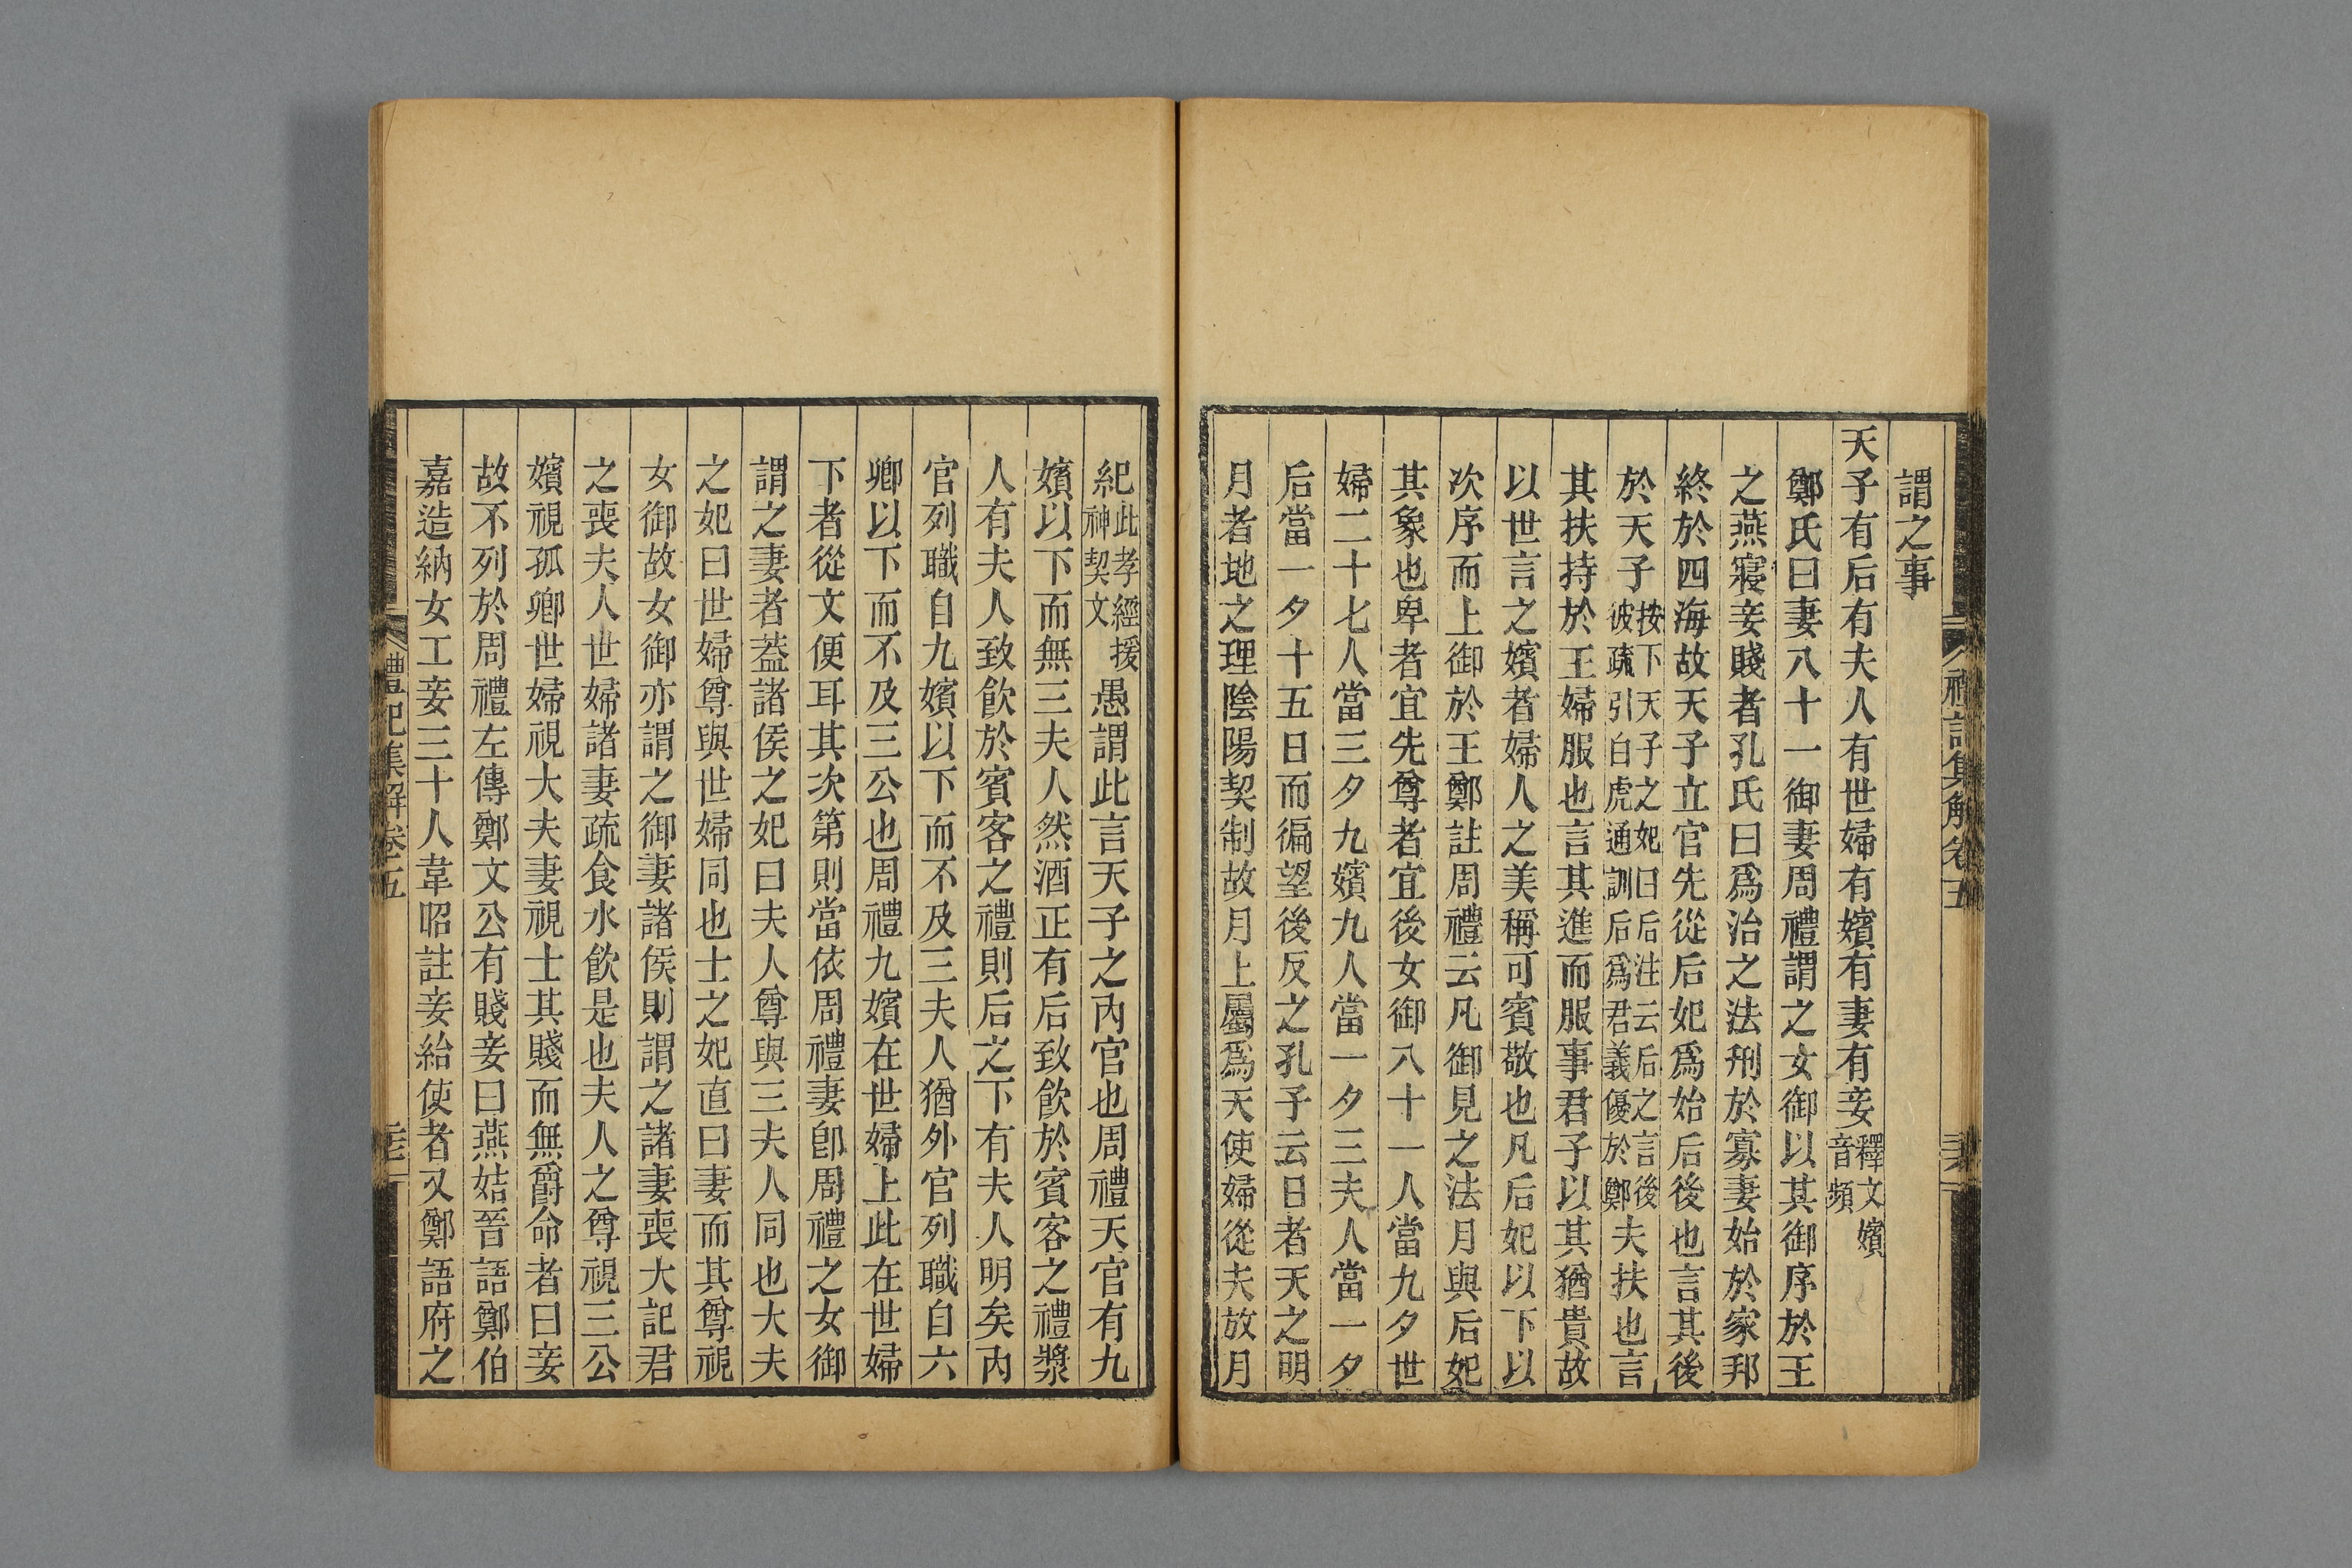 謂之事
天子有后有夫人有世婦有嬪有妻有妾釋文嬪音頻
鄭氏曰妻八十一御妻周禮謂之女御以其御序於王
之燕寢妾賤者孔氏曰爲治之法刑於寡妻始於家邦
終於四海故天子立官先從后妃爲始后後也言其後
於天子按下天子之妃曰后注云后之言後彼疏引白虎通訓后爲君義優於鄭夫扶也言
其扶持於王婦服也言其進而服事君子以其猶貴故
以世言之嬪者婦人之美稱可賓敬也凡后妃以下以
次序而上御於王鄭註周禮云凡御見之法月與后妃
其象也卑者宜先尊者宜後女御八十一人當九夕世
婦二十七人當三夕九嬪九人當一夕三夫人當一夕
后當一夕十五日而徧望後反之孔子云日者天之明
月者地之理陰陽契制故月上屬爲天使婦從夫放月
禮記集解卷五
紀此孝經援神契文愚謂此言天子之內官也周禮天官有九
嬪以下而無三夫人然酒正有后致飲於賓客之禮漿
人有夫人致飲於賓客之禮則后之下有夫人明矣內
官列職自九嬪以下而不及三夫人猶外官列職自六
卿以下而不及三公也周禮九嬪在世婦上此在世婦
下者從文便耳其次第則當依周禮妻卽周禮之女御
謂之妻者葢諸侯之妃曰夫人尊與三夫人同也大夫
之妃曰世婦尊與世婦同也士之妃直曰妻而其尊視
女御故女御亦謂之御妻諸侯則謂之諸妻喪大記君
之喪夫人世婦諸妻疏食水飲是也夫人之尊視三公
嬪視孤卿世婦視大夫妻視士其賤而無爵命者曰妾
故不列於周禮左傳鄭文公有賤妾曰燕姞晉語鄭伯
嘉造納女工妾三十人韋昭註妾給使者又鄭語府之
禮記集解卷五